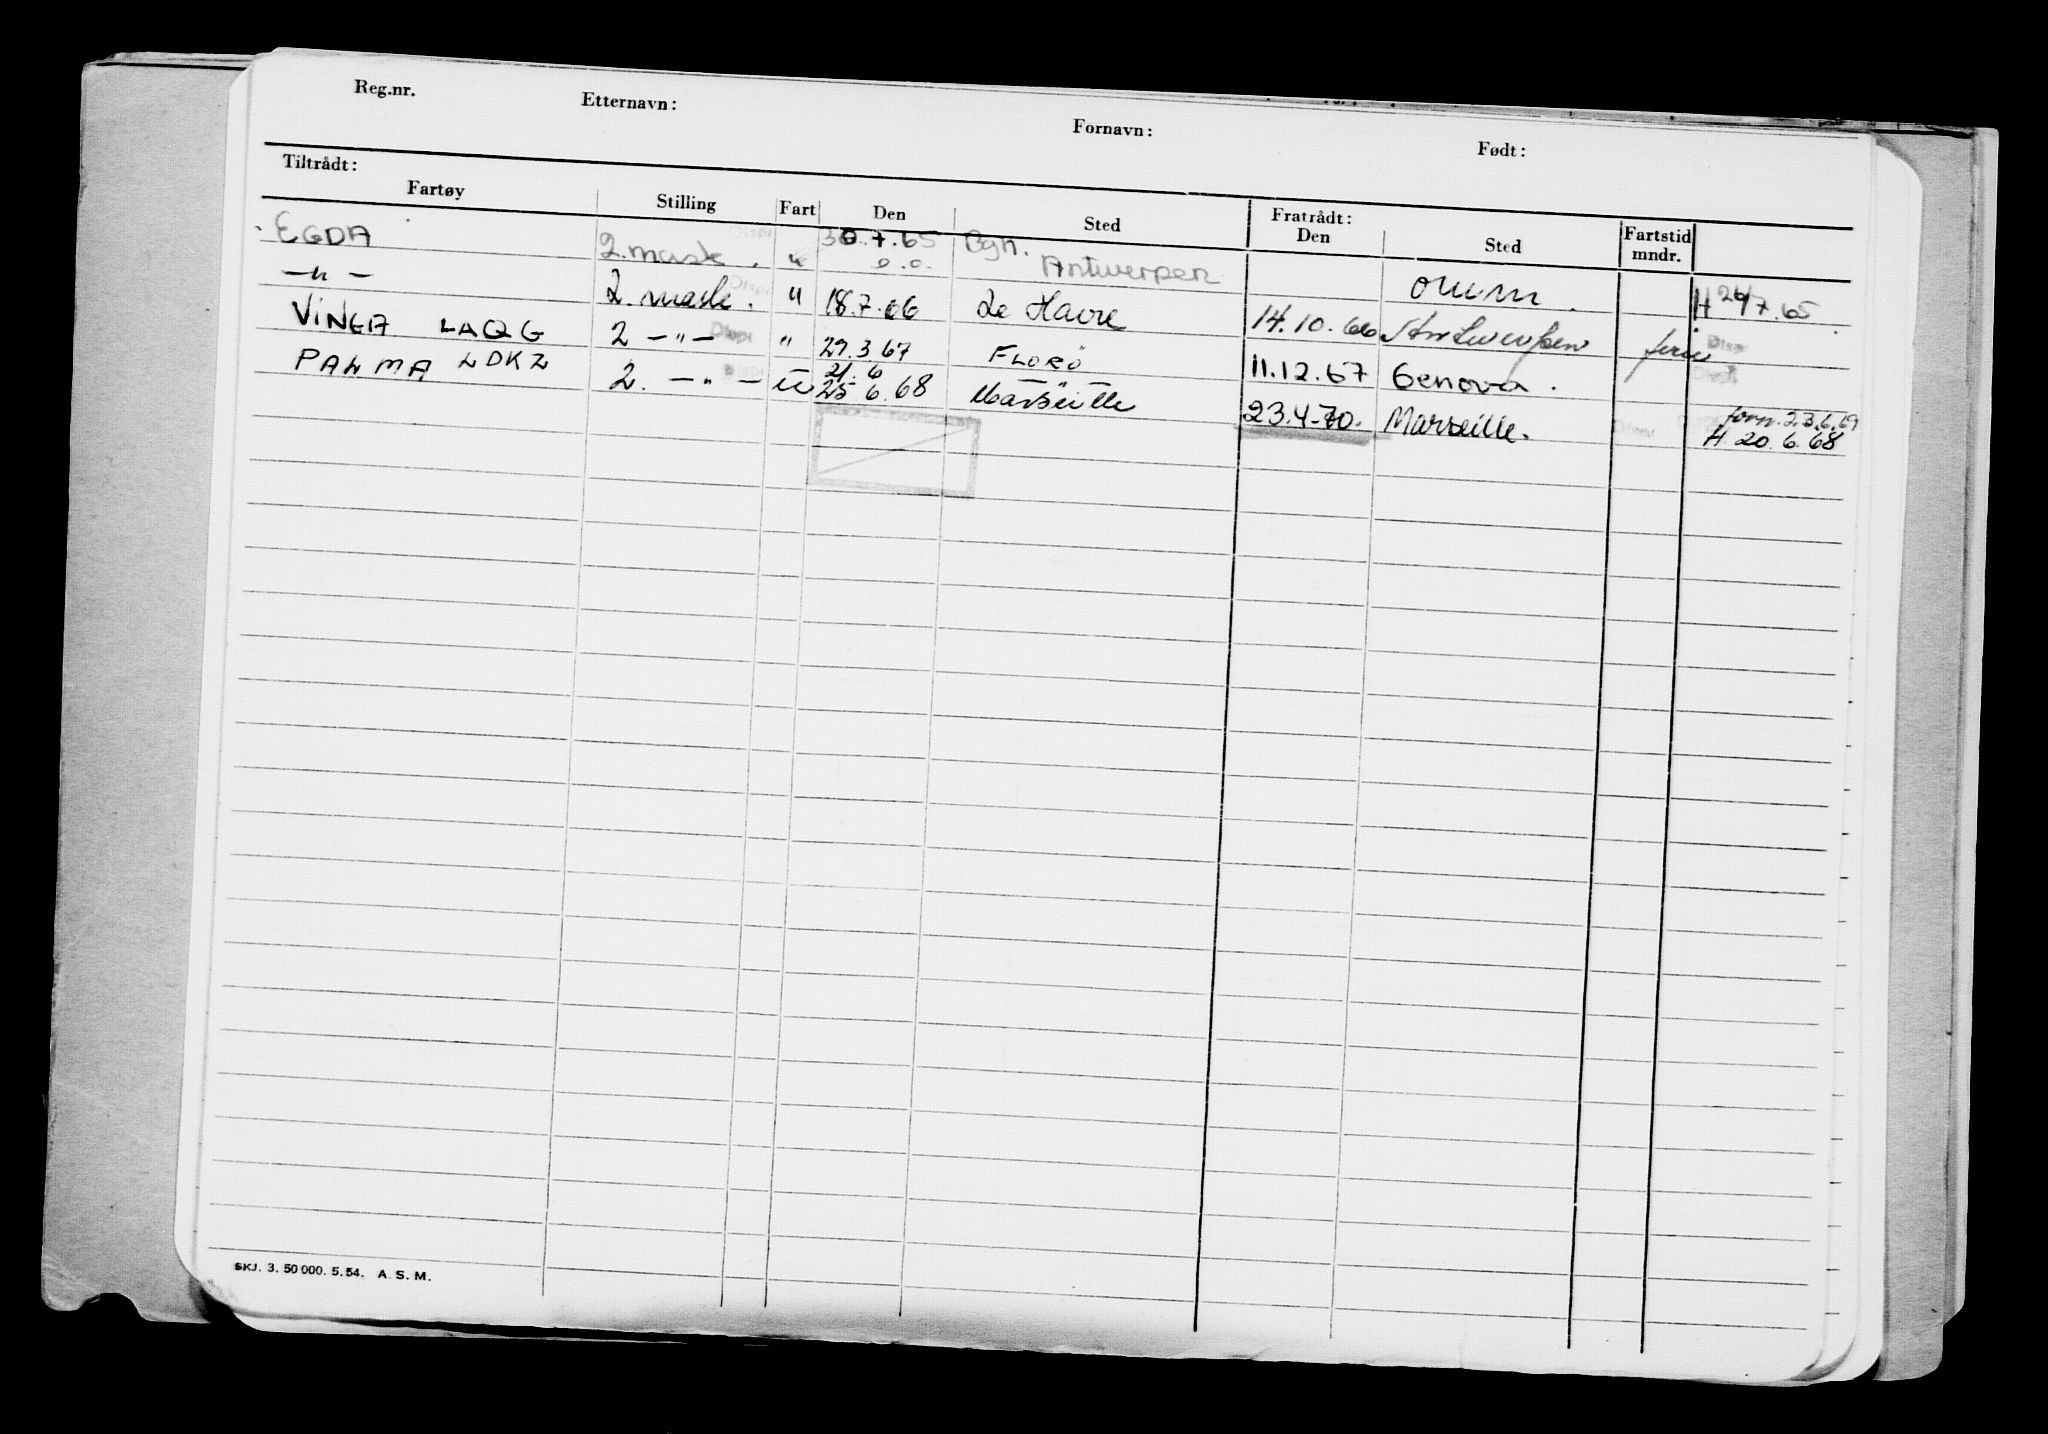 Reg.nr. Etternavn: Fornavn: Født:
Tiltrådt: Fratrådt:
Fartøy Stilling Fart Den Sted Den Sted Fartstid mndr.
EGDA 2. mask. " 30.7.65 Bgn. omm. H 24/7.65
o.o. Antwerpen
—"— 2. mask. " 18.7.66 Le Havre 14.10.66 Antwerpen ferie
VINGA LAQG 2 —"— " 29.3.67 FLORØ 11.12.67 Genova.
PALMA LDKZ 2. —"— u 21.6 25.6.68 Marseille 23.4-70. Marseille. forn. 23.6.69
H. 20.6.68
SKJ. 3. 50 000. 5. 54. A. S. M.